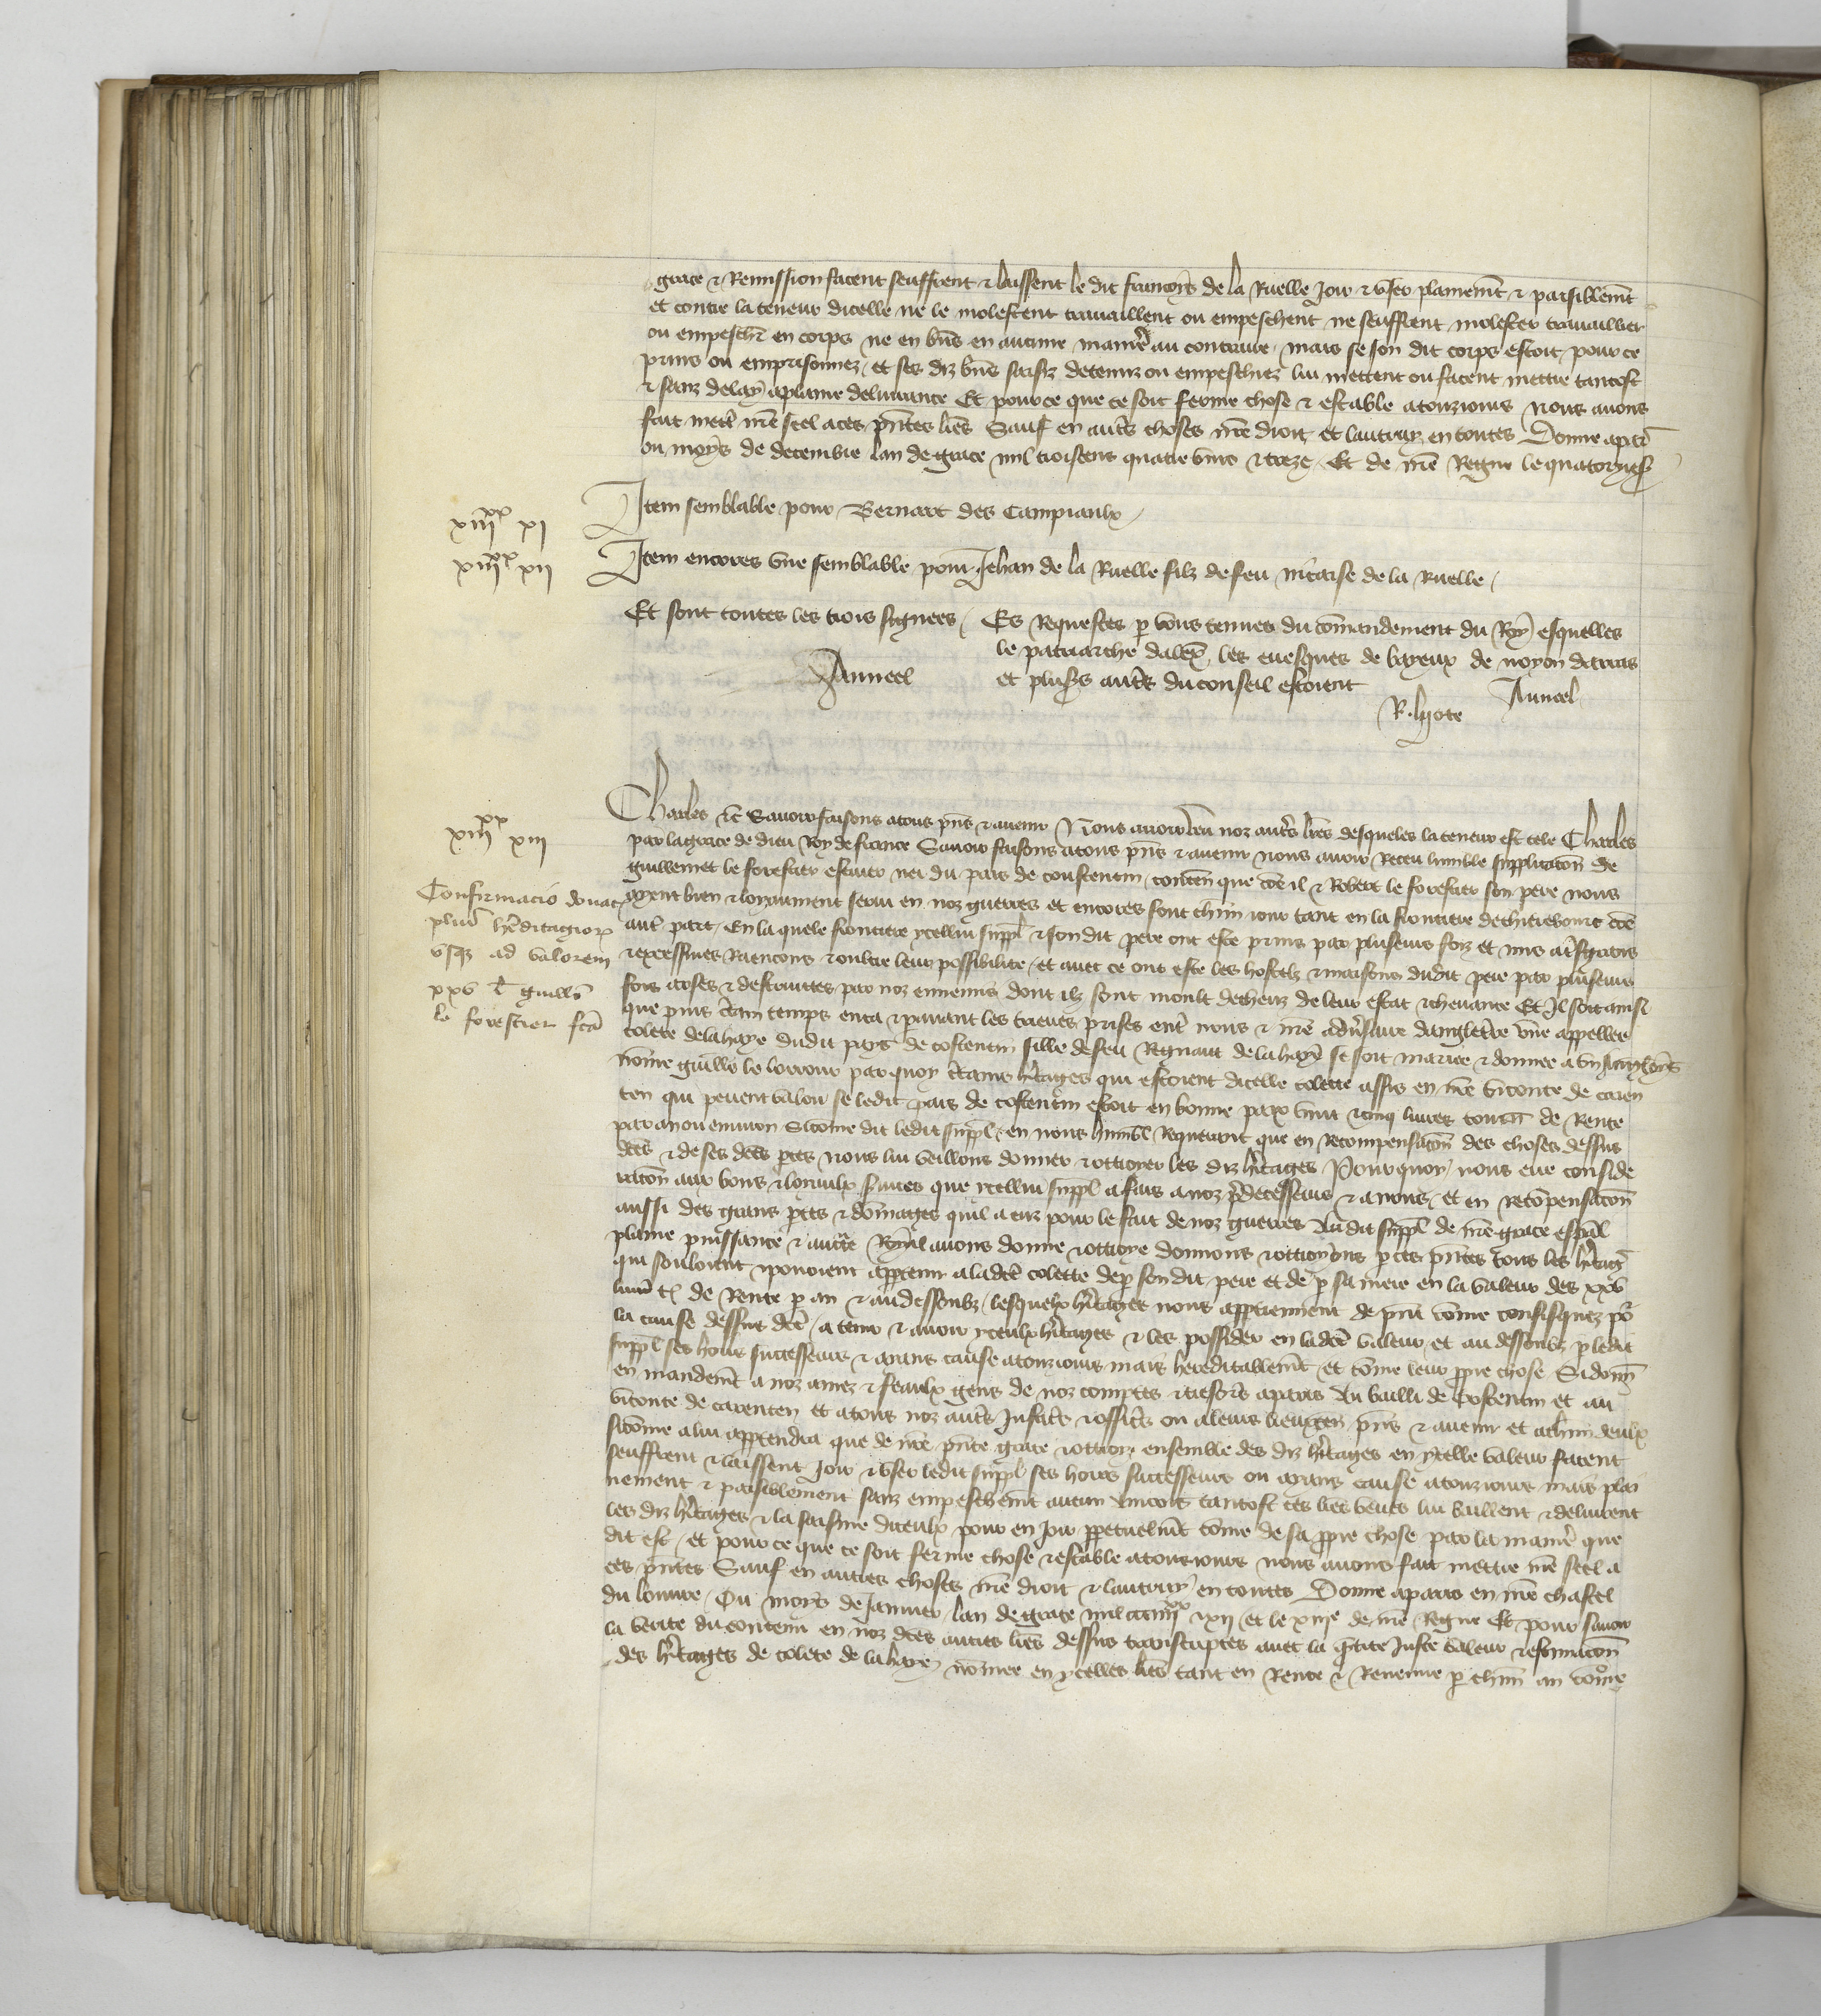 grace & Remission facent seuffrent & laissent le dit francois de la Ruelle Joir & user plainemt & paisiblemt
et contre la teneur dicelle ne le molestent travaillent ou empeschent ne seuffrent molester travaillier
ou empeschr en corps ne en bñs en aucune manre au contraire mais se son dit corps estoit pour ce
prins ou emprisonnez et ses diz bñs saisiz detenuz ou empeschiez lui mettent ou facent mettre tantost
& sanz delay a plaine delivrance Et pour ce que ce soit ferme chose & estable a touzjours Nous avons
fait mettre nre seel a ces pñtes lres Sauf en autrs choses nre droit et lautruy en toutes Donne a par
ou moys de decembre lan de grace mil troiscens quatre vins & treze Et de nre Regne le quatorzies
xiiiixx xi
Item semblable pour Bernart des Campiaulx
xiiiixx xii
Item encores une semblable pour Jehan de la Ruelle filz de feu nicaise de la Ruelle
Et sont toutes les trois signees Es Requestes p vous tenues du cõmandement du Roy esquelles
le patriarche dalex les evesques de bayeux de noyon darras
et plusrs autrs du conseil estoient
Anneel
Anneel
R. lyote
xiiiixx xiii
Charles &c Savoir faisons a tous pñs & avenir Nous avoir veu noz autrs lres desqueles la teneur est tele Charles
par la grace de dieu Roy de france Savoir faisons a tous pñs & avenir nous avoir Receu humble supplicacon de
guillemet le forestier escuier nei du pais de coustentin conten que cõe il & Robert le forestier son pere nous
Confirmacio donac
plurm hereditagiorum
usque ad valorem
xxv l t guillo
le forestier fca
ayent bien & loyaument servi en noz guerres et encores font chun jour tant en la frontiere de chierebourc cõe
autre part En la quele frontiere ycellui suppl & son dit pere ont este prins par pluseurs foiz et mis a grans
& excessives Raencons & oultre leur possibilite et avec ce ont este les hostelz & maisons dudit pere par pluseurs
fois arses & destruittes par noz ennemis dont ilz sont moult decheuz de leur estat & chevance Et Il soit ainsi
que puis certain temps enca & paravant les treves prises entre nous & nre adversaire dangleterre une appellee
colete de la haye dudit pays de costentin fille de feu Regnaut de la haye se soit mariee & donnee a un Anglois
nõme guille le par quoy certains hritages qui estoient dicelle colette assis en nre viconte de caren
ten qui pevent valoir se ledit pais de costentin estoit en bonne paix vint & cinq livres tourn de Rente
par an ou environ Sicõme dit ledit suppl en nous humblt Requerant que en Recompensacon des choses dessus
dces & de ses dces ptes nous lui veillons donner & ottroyer les diz hritages Pourquoy nous eue conside
racon aux bons & loyaulx servises que ycellui suppl a fais a noz predecesseurs & a nous et en recompensacon
aussi des grans ptes & dõmages quil a euz pour le fait de noz guerres Audit suppl de nre grace espal
plaine puissance & auctte Royal avons donne & ottroye donnons & ottroyons p ces pñtes tous les hritag
qui souloient & povoient apptenir a ladce colette de p son dit pere et de p sa mere en la valeur des xxv
livr t de Rente p an & au dessoubz lesquelx hritages nous apptiennent de pñt cõme confisquez por
la cause dessus dce a tenir & avoir yceulx hritages & les possider en ladce valeur et au dessoubz p ledit
suppl ses hoirs successeurs & aians cause a touzjours mais hereditablemt et cõme leur ppre chose Si donn
en mandemt a noz amez & feaulx gens de noz comptes & tresors a paris Au bailli de Costentin et au
viconte de carenten et a tous noz autrs Justic & offic ou a leurs lieuxten pñs & avenir et a chun deulx
sicõme a lui apptendra que de nre pñte grace & ottroy ensemble des diz hritages en ycelle valeur facent
seuffrent & laissent Joir & user ledit suppl ses hoirs successeurs ou aians cause a touzjours mais plai
nement & paisiblement sanz empeschemt aucun Aincois tantost ces lres veues lui baillent & delivrent
les diz hritages & la saisine diceulx pour en joir ppetuelmt cõme de sa ppre chose par la manre que
dit est et pour ce que ce soit ferme chose & estable a tousjours nous avons fait mettre nre seel a
ces pñtes Sauf en autres choses nre droit & lautruy en toutes Donne a paris en nre chastel
du louvre Ou moys de Janvier lan de grace mil ccc iiiixx & xii et le xiiie de nre Regne Et pour savoir
la verite du contenu en noz dces autres lres dessus transcriptes avec la certte Juste valeur & estimacon
des hritages de colete de la haye nõmee en ycelles lres tant en Rente & Revenue p chun an cõme